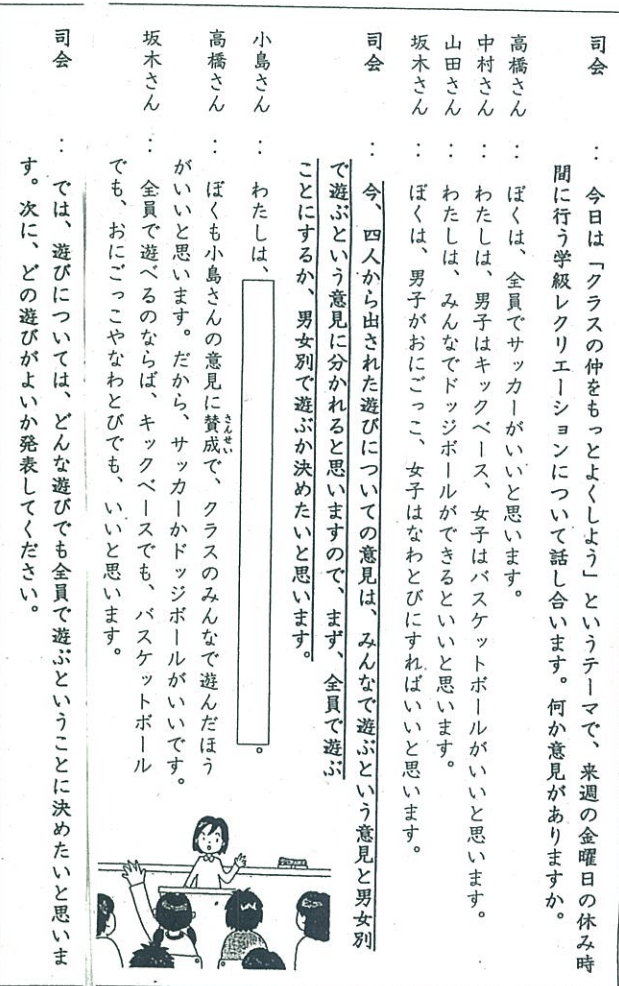 司会 ： 今日は「クラスの仲をもっとよくしよう」というテーマで、来週の金曜日の休み時
間に行う学級レクリエーションについて話し合います。何か意見がありますか。
高橋さん ： ぼくは、全員でサッカーがいいと思います。
中村さん ： わたしは、男子はキックベース、女子はバスケットボールがいいと思います。
山田さん ： わたしは、みんなでドッジボールができるといいと思います。
坂木さん ： ぼくは、男子がおにごっこ、女子はなわとびにすればいいと思います。
司会 ： 今、四人から出された遊びについての意見は、みんなで遊ぶという意見と男女別
で遊ぶという意見に分かれると思いますので、まず、全員で遊ぶ
ことにするか、男女別で遊ぶか決めたいと思います。
小島さん ： わたしは、 。
高橋さん ： ぼくも小島さんの意見に賛成で、クラスのみんなで遊んだほう
さんせい
がいいと思います。だから、サッカーかドッジボールがいいです。
坂木さん ： 全員で遊べるのならば、キックベースでも、バスケットボール
でも、おにごっこやなわとびでも、いいと思います。
司会 ： では、遊びについては、どんな遊びでも全員で遊ぶということに決めたいと思いま
す。次に、どの遊びがよいか発表してください。